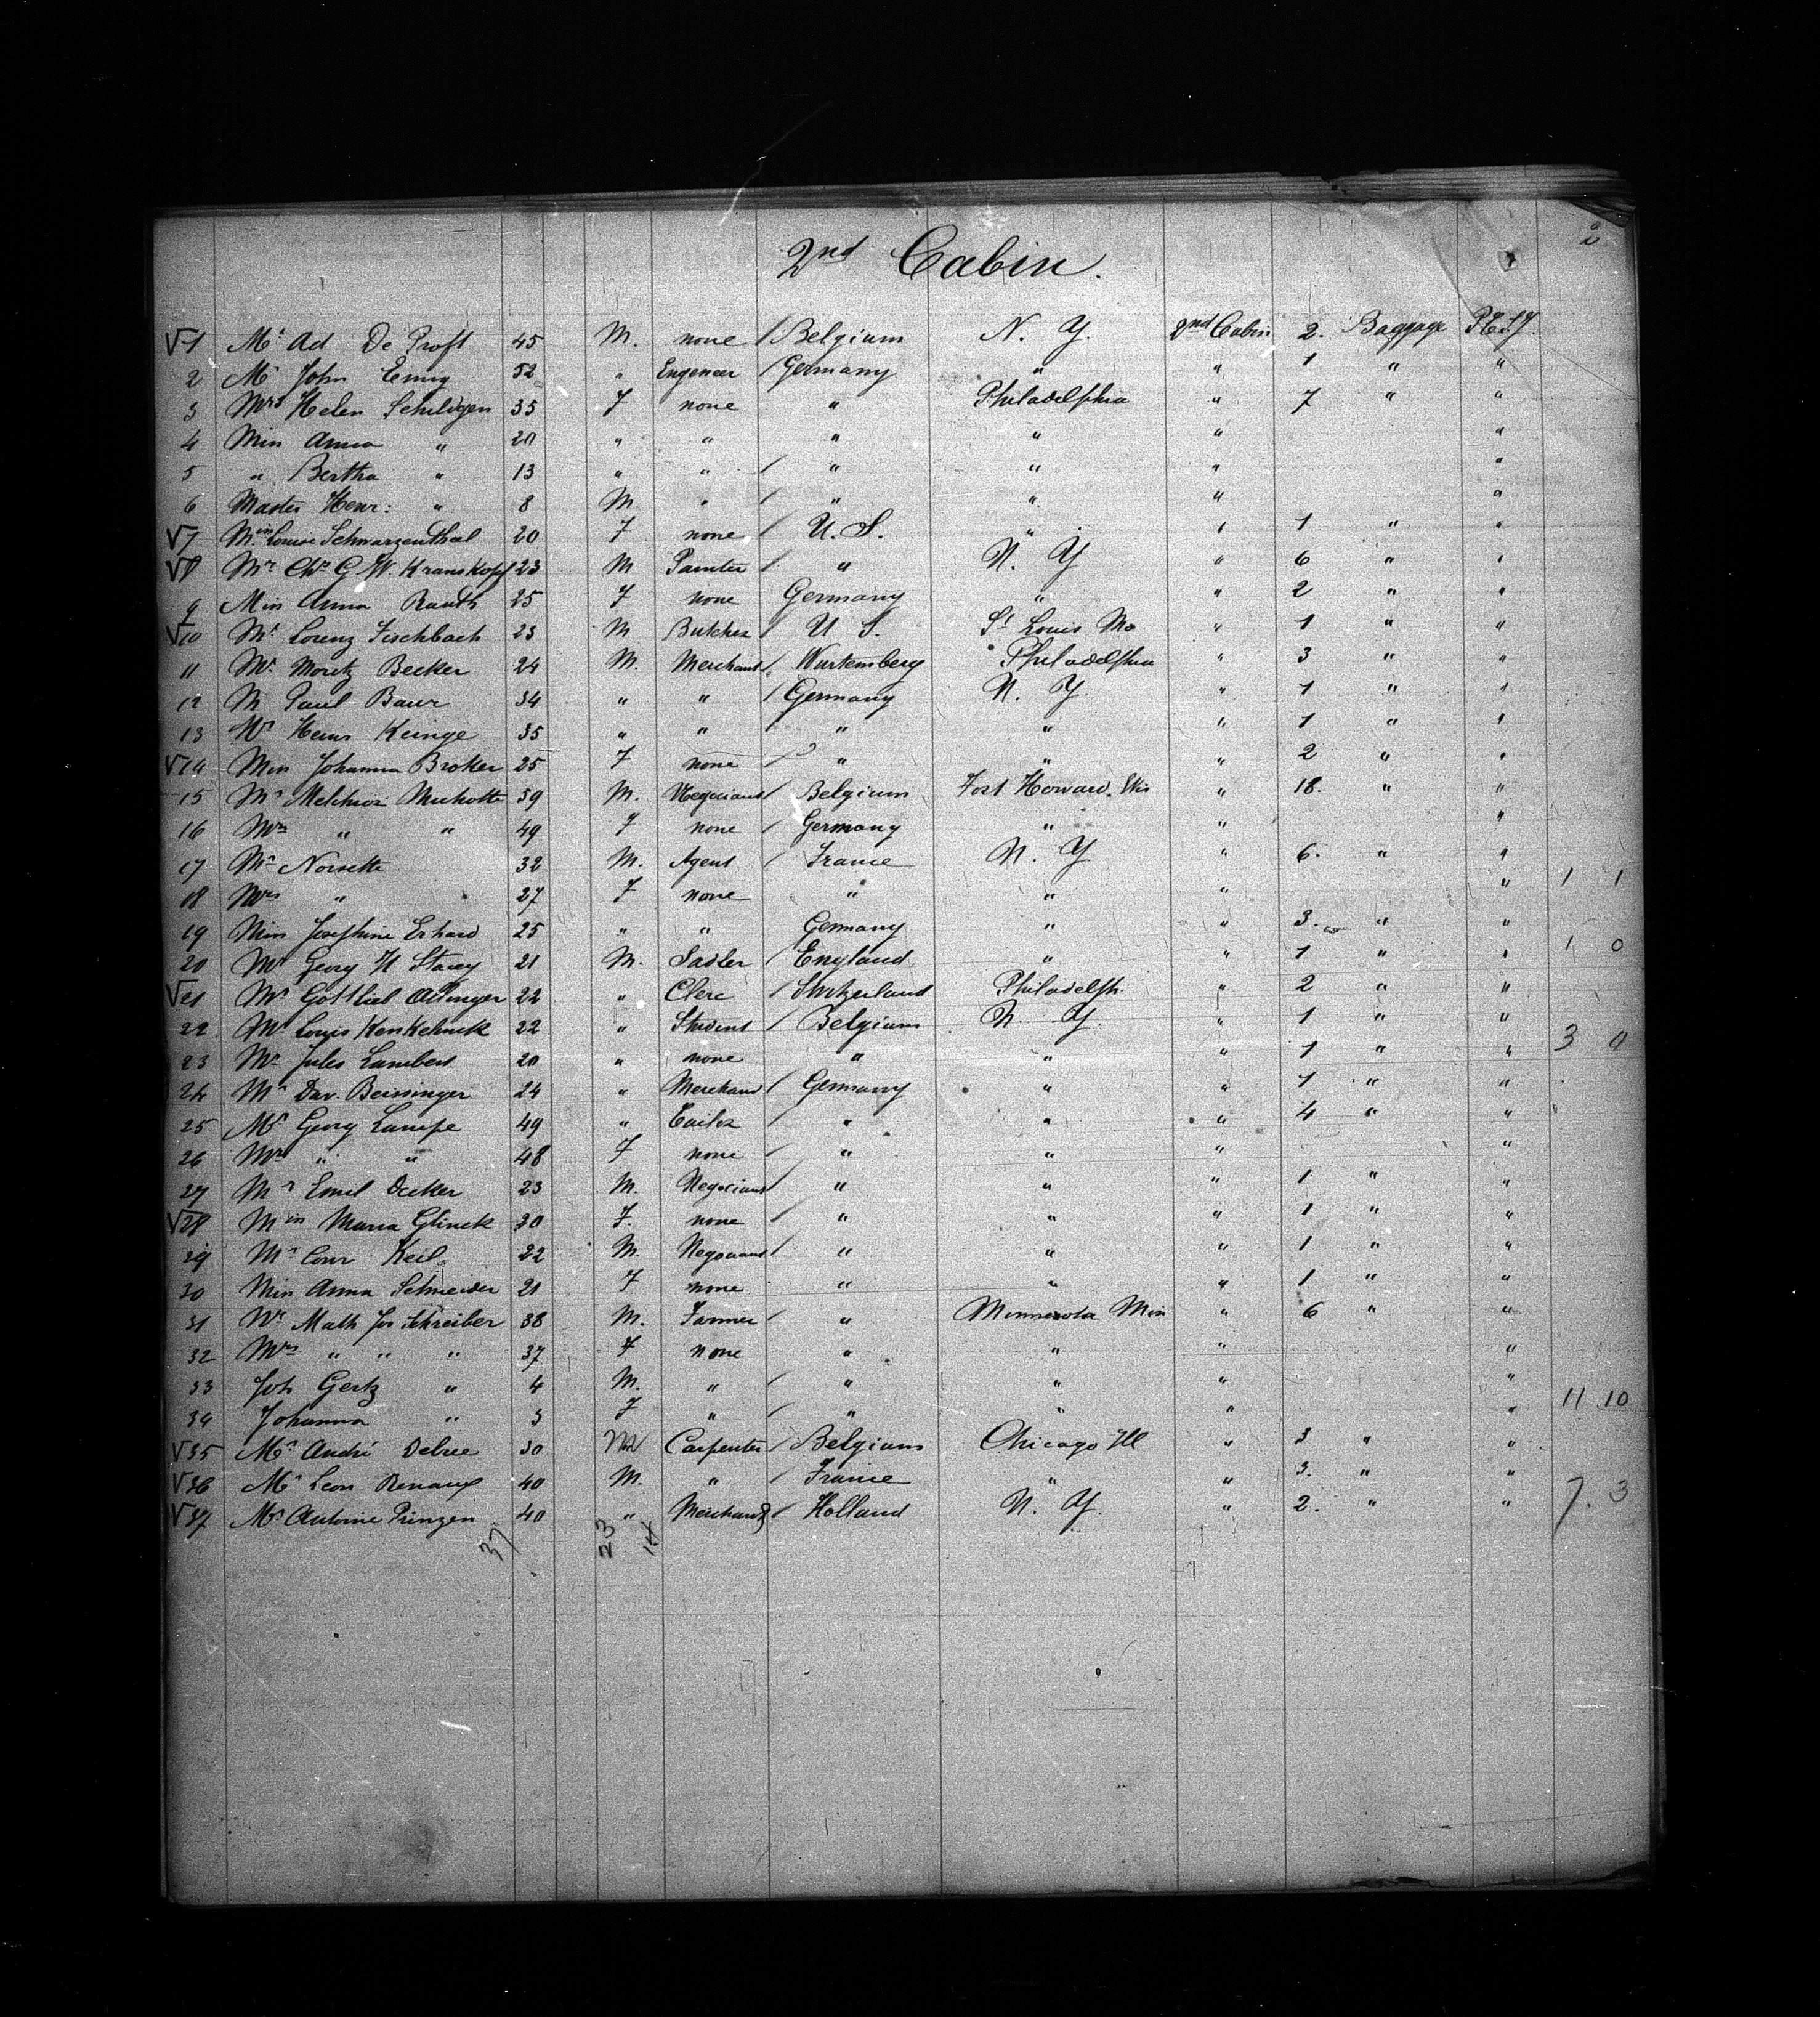 2
2nd Cabin.
√1 Mr Ad De Proft 45 M. none / Belgium N. Y. 2nd Cabin 2. Baggage
2 Mr John Emig 52 " Engeneer / Germany " " 1 " "
3 Mrs Helen Schildgen 35 F none " Philadelphia " 7 " "
4 Miss Anna " 20 " " " " " "
5 " Bertha " 13 " " / " " " "
6 Master Henr: " 8 M " / " " " "
√7 Miss Louise Schwarzenthal 20 F none / U. S. " " 1 " "
√8 Mr Chs G W. Kranskopf 23 M Painter / " N. Y " 6 " "
9 Miss Anna Rauth 25 F none Germany " " 2 " "
√10 Mr Lorenz Fischbach 23 M Butcher / U S. St Louis Mo " 1 " "
11 Mr Moritz Becker 24 M. Merchant / Wurtemberg Philadelphia " 3 " "
12 M Paul Baur 34 " " / Germany N. Y " 1 " "
13 Mr Heins Keinge 35 " " / " " " 1 " "
√14 Miss Johanna Broker 25 F none / " " " 2 " "
15 Mr Melchior Michotte 39 M. Negociant / Belgium Fort Howard. Wis " 18. " "
16 Mrs " " 49 F none / Germany " " "
17 Mr Noisette 32 M. Agent / France N. Y " 6. " "
18 Mrs " 27 F none " " " " 1 1
19 Miss Josephine Erhard 25 " " Germany " " 3. " "
20 Mr Georg H Stacey 21 M. Sadler / England " " 1 " " 1 0
√21 Mr Gottlieb 22 " Clerc / Switzerland Philadelph. " 2 " "
22 Mr Louis 22 " Student / Belgium N. Y. " 1 " "
23 Mr Jules Lambert 20 " none " " " 1 " " 3 0
24 Mr Dav. Beissinger 24 " Merchand / Germany " " 1 " "
25 Mr Georg Lampe 49 " / " " " 4 " "
26 Mrs " " 48 F none / " " " "
27 Mr Emil Decker 23 M. Negociant / " " " 1 " "
√28 Miss Maria Glinck 30 F. none / " " " 1 " "
29 Mr Conr Keil 22 M. Negociant / " " " 1 " "
30 Miss Anna Schneider 21 F none " " " 1 " "
31 Mr Math Jos Schreiber 38 M. Farmer / " Minnesota Min " 6 " "
32 Mrs " " " 37 F none " " " "
33 Joh Gertz " 4 M. " / " " " "
34 Johanna " 3 F " / " " " " 11 10
√35 Mr André Delree 30 M Carpenter / Belgium Chicago Ill " 3 " "
√36 Mr Leon Renaux 40 M. " / France " " 3. " "
√37 Mr Antoine Prinzen 40 " Merchant / Holland N. Y. " 2. " " 7. 3
37 23 14